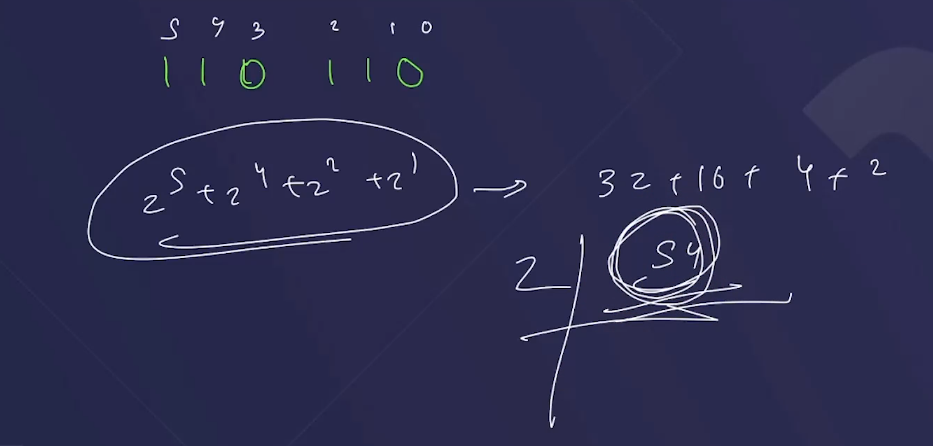 5 4 3 2 1 0
1 1 0 1 1 0
2^5 + 2^4 + 2^2 + 2^1 → 32 + 16 + 4 + 2
2 | 54